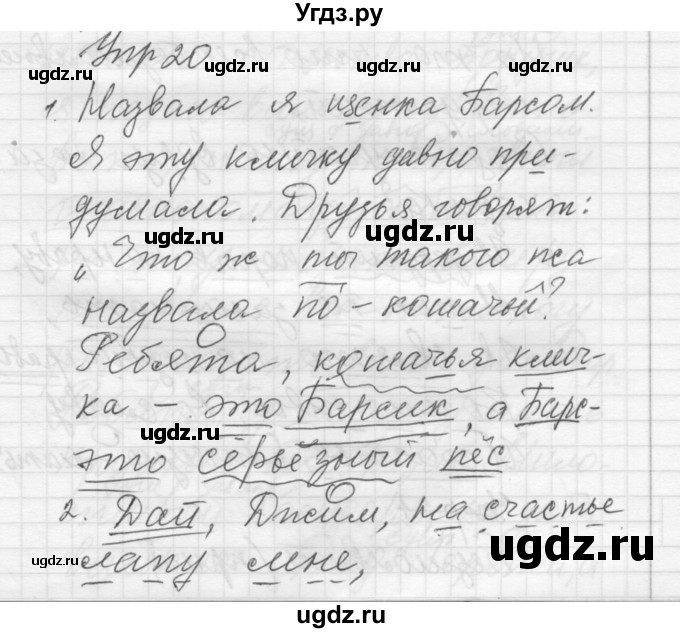 Угдз.ру
Упр 20
1. Назвала я щенка Барсом.
Я эту кличку давно при-
думала. Друзья говорят:
„Что ж ты такого пса
назвала по-кошачьи?
Ребята, кошачья клич-
ка – это Барсик, а Барс-
это серьёзный пёс
2. Дай, Джим, на счастье
лапу мне,
ugdz.ru
ugdz.ru
ugdz.ru
ugdz.ru
ugdz.ru
ugdz.ru
ugdz.ru
ugdz.ru
ugdz.ru
ugdz.ru
ugdz.ru
ugdz.ru